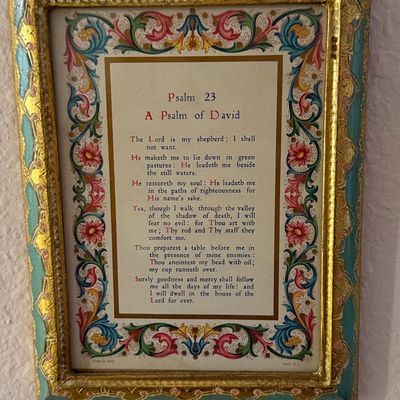 Psalm 23
A Psalm of David
The Lord is my shepherd; I shall
not want.
He maketh me to lie down in green
pastures: He leadeth me beside
the still waters.
He restoreth my soul: He leadeth me
in the paths of righteousness for
His name's sake.
Yea, though I walk through the valley
of the shadow of death, I will
fear no evil: for Thou art with
me; Thy rod and Thy staff they
comfort me.
Thou preparest a table before me in
the presence of mine enemies:
Thou anointest my head with oil;
my cup runneth over.
Surely goodness and mercy shall follow
me all the days of my life: and
I will dwell in the house of the
Lord for ever.